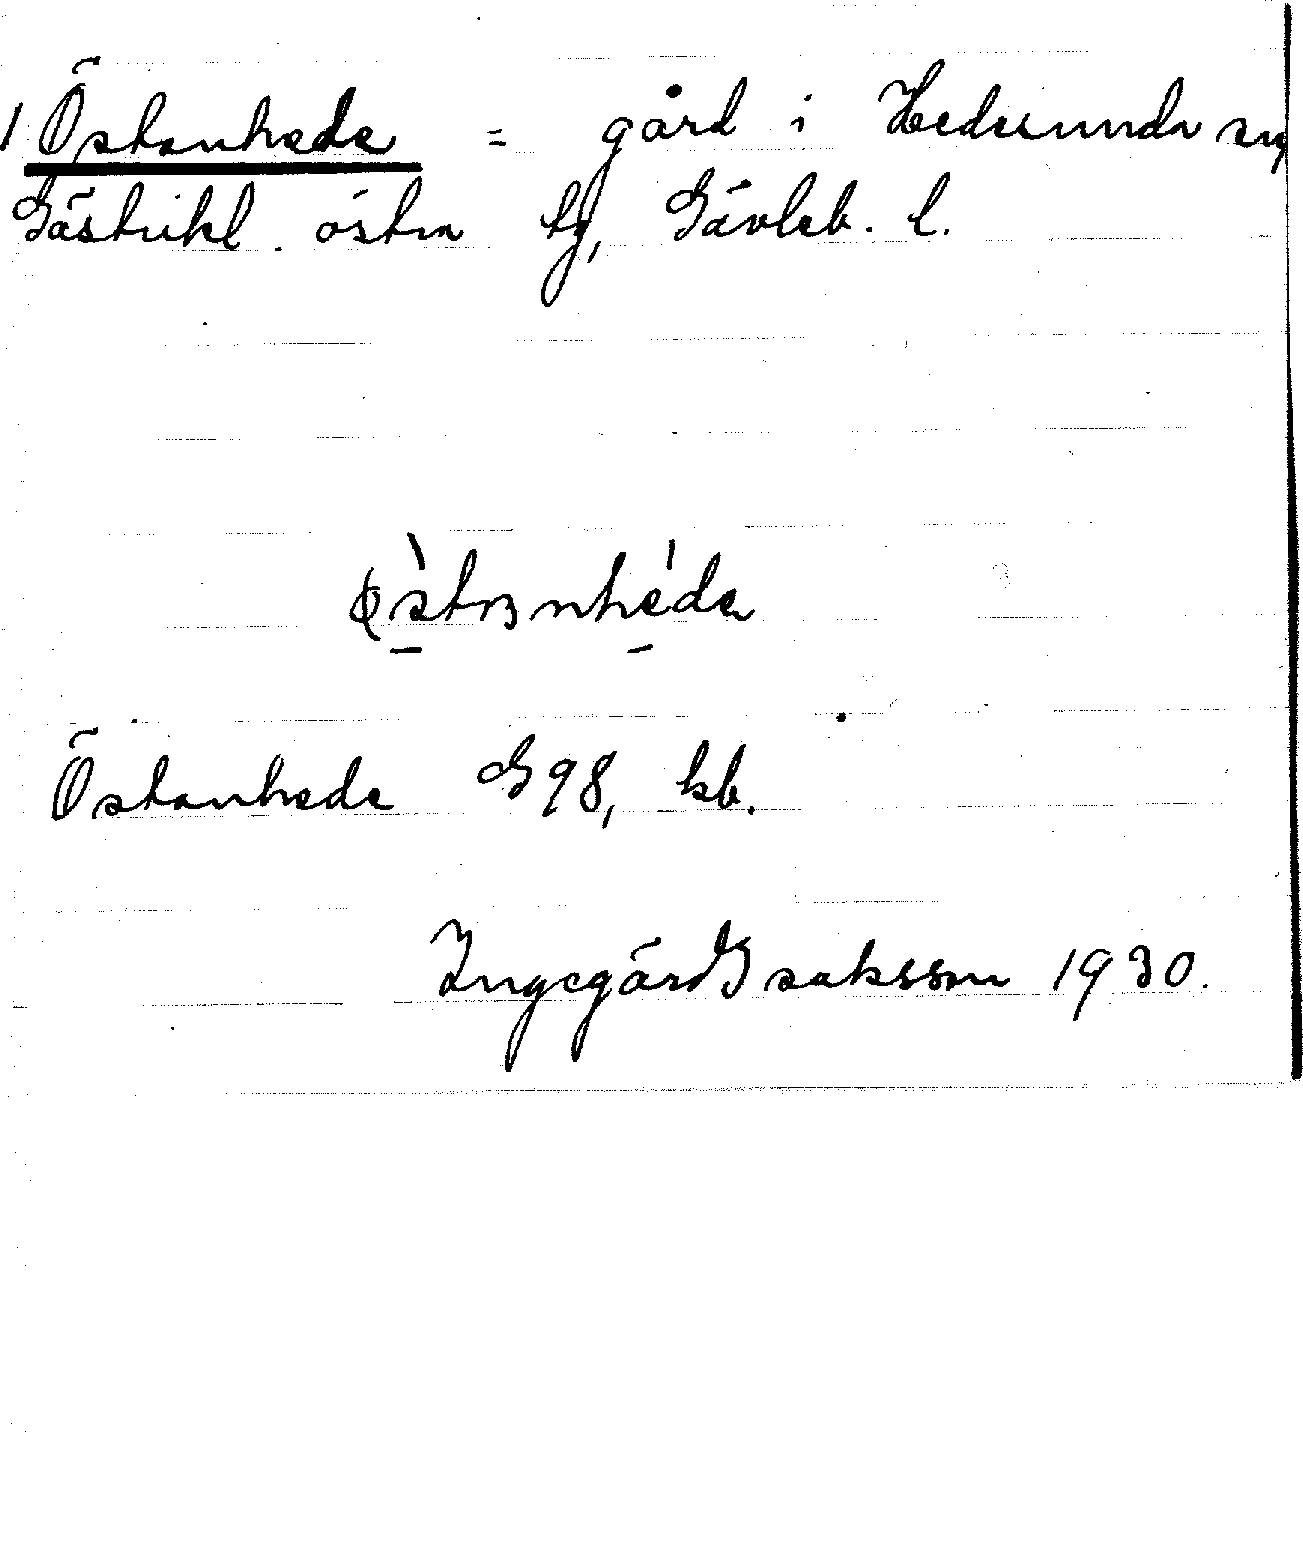 1 Östanhede = gård i Hedesunda sn,
Gästrikl. östra tg, Gävleb. l.
Östanhede G 98, kb.
Ingegärd Isaksson 1930.